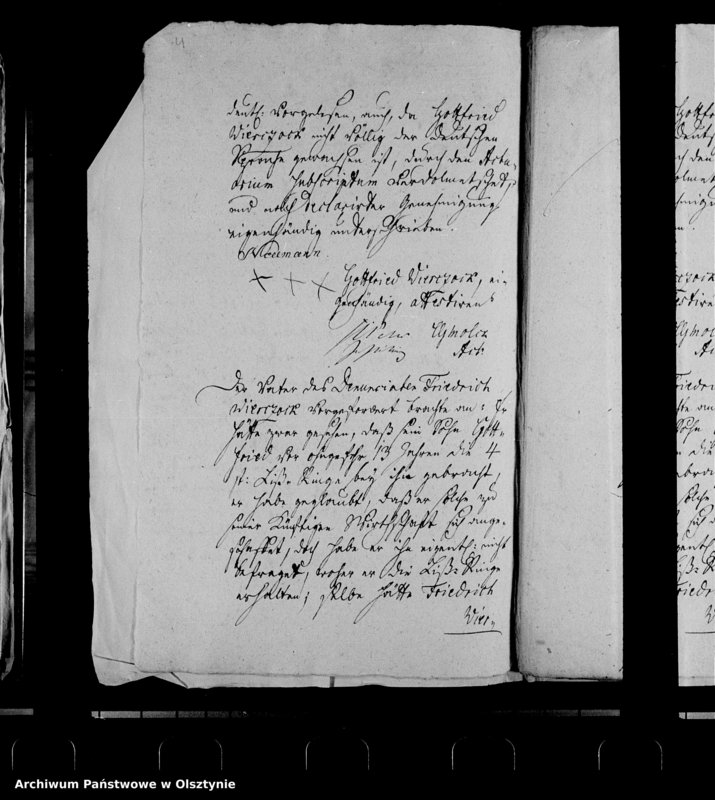 4
deutl: vorgelesen, auch, da Gottfried
Wierczock nicht völlig der Deutschen
Sprache gewachsen ist, durch den Actu-
arium Subscriptum verdolmetschet,
und nach declarirter Genehmigung
eigenhändig unterschrieben.
Neumann.
+ + + Gottfried Wierczock, ei-
genhändig, attestiren
Czwolcz
Act:
Der Vater des Denunciaten Friedrich
Wierczock vorgefordert brachte an: Er
hätte zwar gesehen, daß sein Sohn Gott-
fried vor ohngefehr 13 Jahren die 4
st: Liß-Ringe bey ihm gebracht,
er habe geglaubt, daß er solche zu
seiner künftigen Wirthschaft sich ange-
schaffet, doch habe er ihn eigentl: nicht
befraget, woher er die Liß-Ringe
erhalten; selbe hätte Friedrich
Wier-
Archiwum Państwowe w Olsztynie